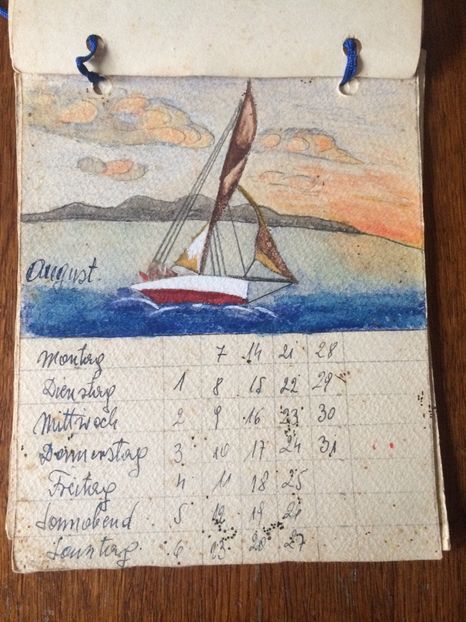 August.
Montag 7 14 21 28
Dienstag 1 8 15 22 29
Mittwoch 2 9 16 23 30
Donnerstag 3 10 17 24 31
Freitag 4 11 18 25
Sonnabend 5 12 19 26
Sonntag 6 13 20 27